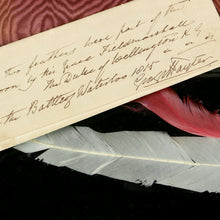 This feathers were part of the
worn by His Grace Fieldmarshall
The Duke of Wellington K.G.
the Battle of Waterloo 1815